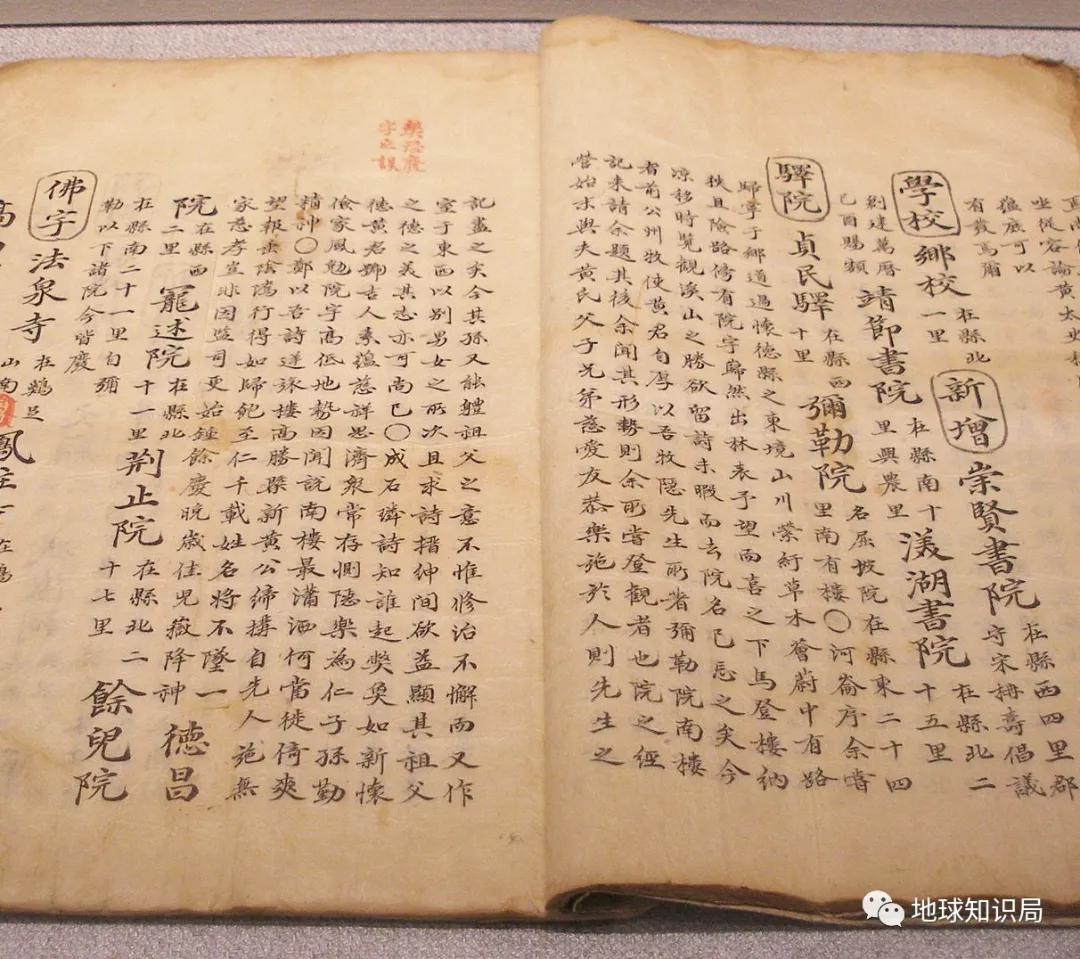 坐從容論黃太史
蘊底可以
有發焉爾
學校 鄉校 在縣北一里 新增 崇賢書院 在縣西四里郡
守宋 壽倡議
創建萬曆
己酉賜額 靖節書院 在縣南十里興農里 漾湖書院 在縣北二十五里
驛院 貞民驛 在縣西十里 彌勒院 名屈坡院在縣東二十四
里南有樓〇河崙序余嘗
歸寧于鄉道過懷德縣之東境山川縈紆草木薈蔚中有路
秩且險路傍有院宇巋然出林表予望而喜之下馬登樓納
凉移時覽觀溪山之勝欲留詩未暇而去院名已忘之矣今
者前公州牧使黃君自厚以吾牧隱先生所著彌勒院南樓
記來請余題其後余聞其形勢則余所嘗登觀者也院之經
營始末與夫黃氏父子兄弟慈愛友恭樂施於人則先生之
獘恐廢
字之誤
記盡之矣今其孫又能軆祖父之意不惟修治不懈而又作
室于東西以別男女之所次且求詩搢紳間欲益顯其祖父
之德之美其志亦可尚已〇成石璘詩知誰起獘奐如新懷
德黃君鄉吉人素蘊慈詳思濟衆常存惻隱樂為仁子孫勤
儉家風勉院宇高低地勢因聞說南樓最瀟洒何當徙倚爽
精神〇鄭以吾詩逆旅樓高勝槩新黃公締搆自先人施無
望報長陰隲行得如歸飽至仁千載姓名將不墜一
家慈孝宣 因監司更始鍾餘慶晚歲佳兒嶽降神 德昌
院 在縣西二里 述院 在縣北十一里 荆止院 在縣北二十七里 餘兒院
在縣南二十一里自彌
勒以下諸院今皆廢
佛宇 法泉寺 在鷄足山南 鳳
地球知识局